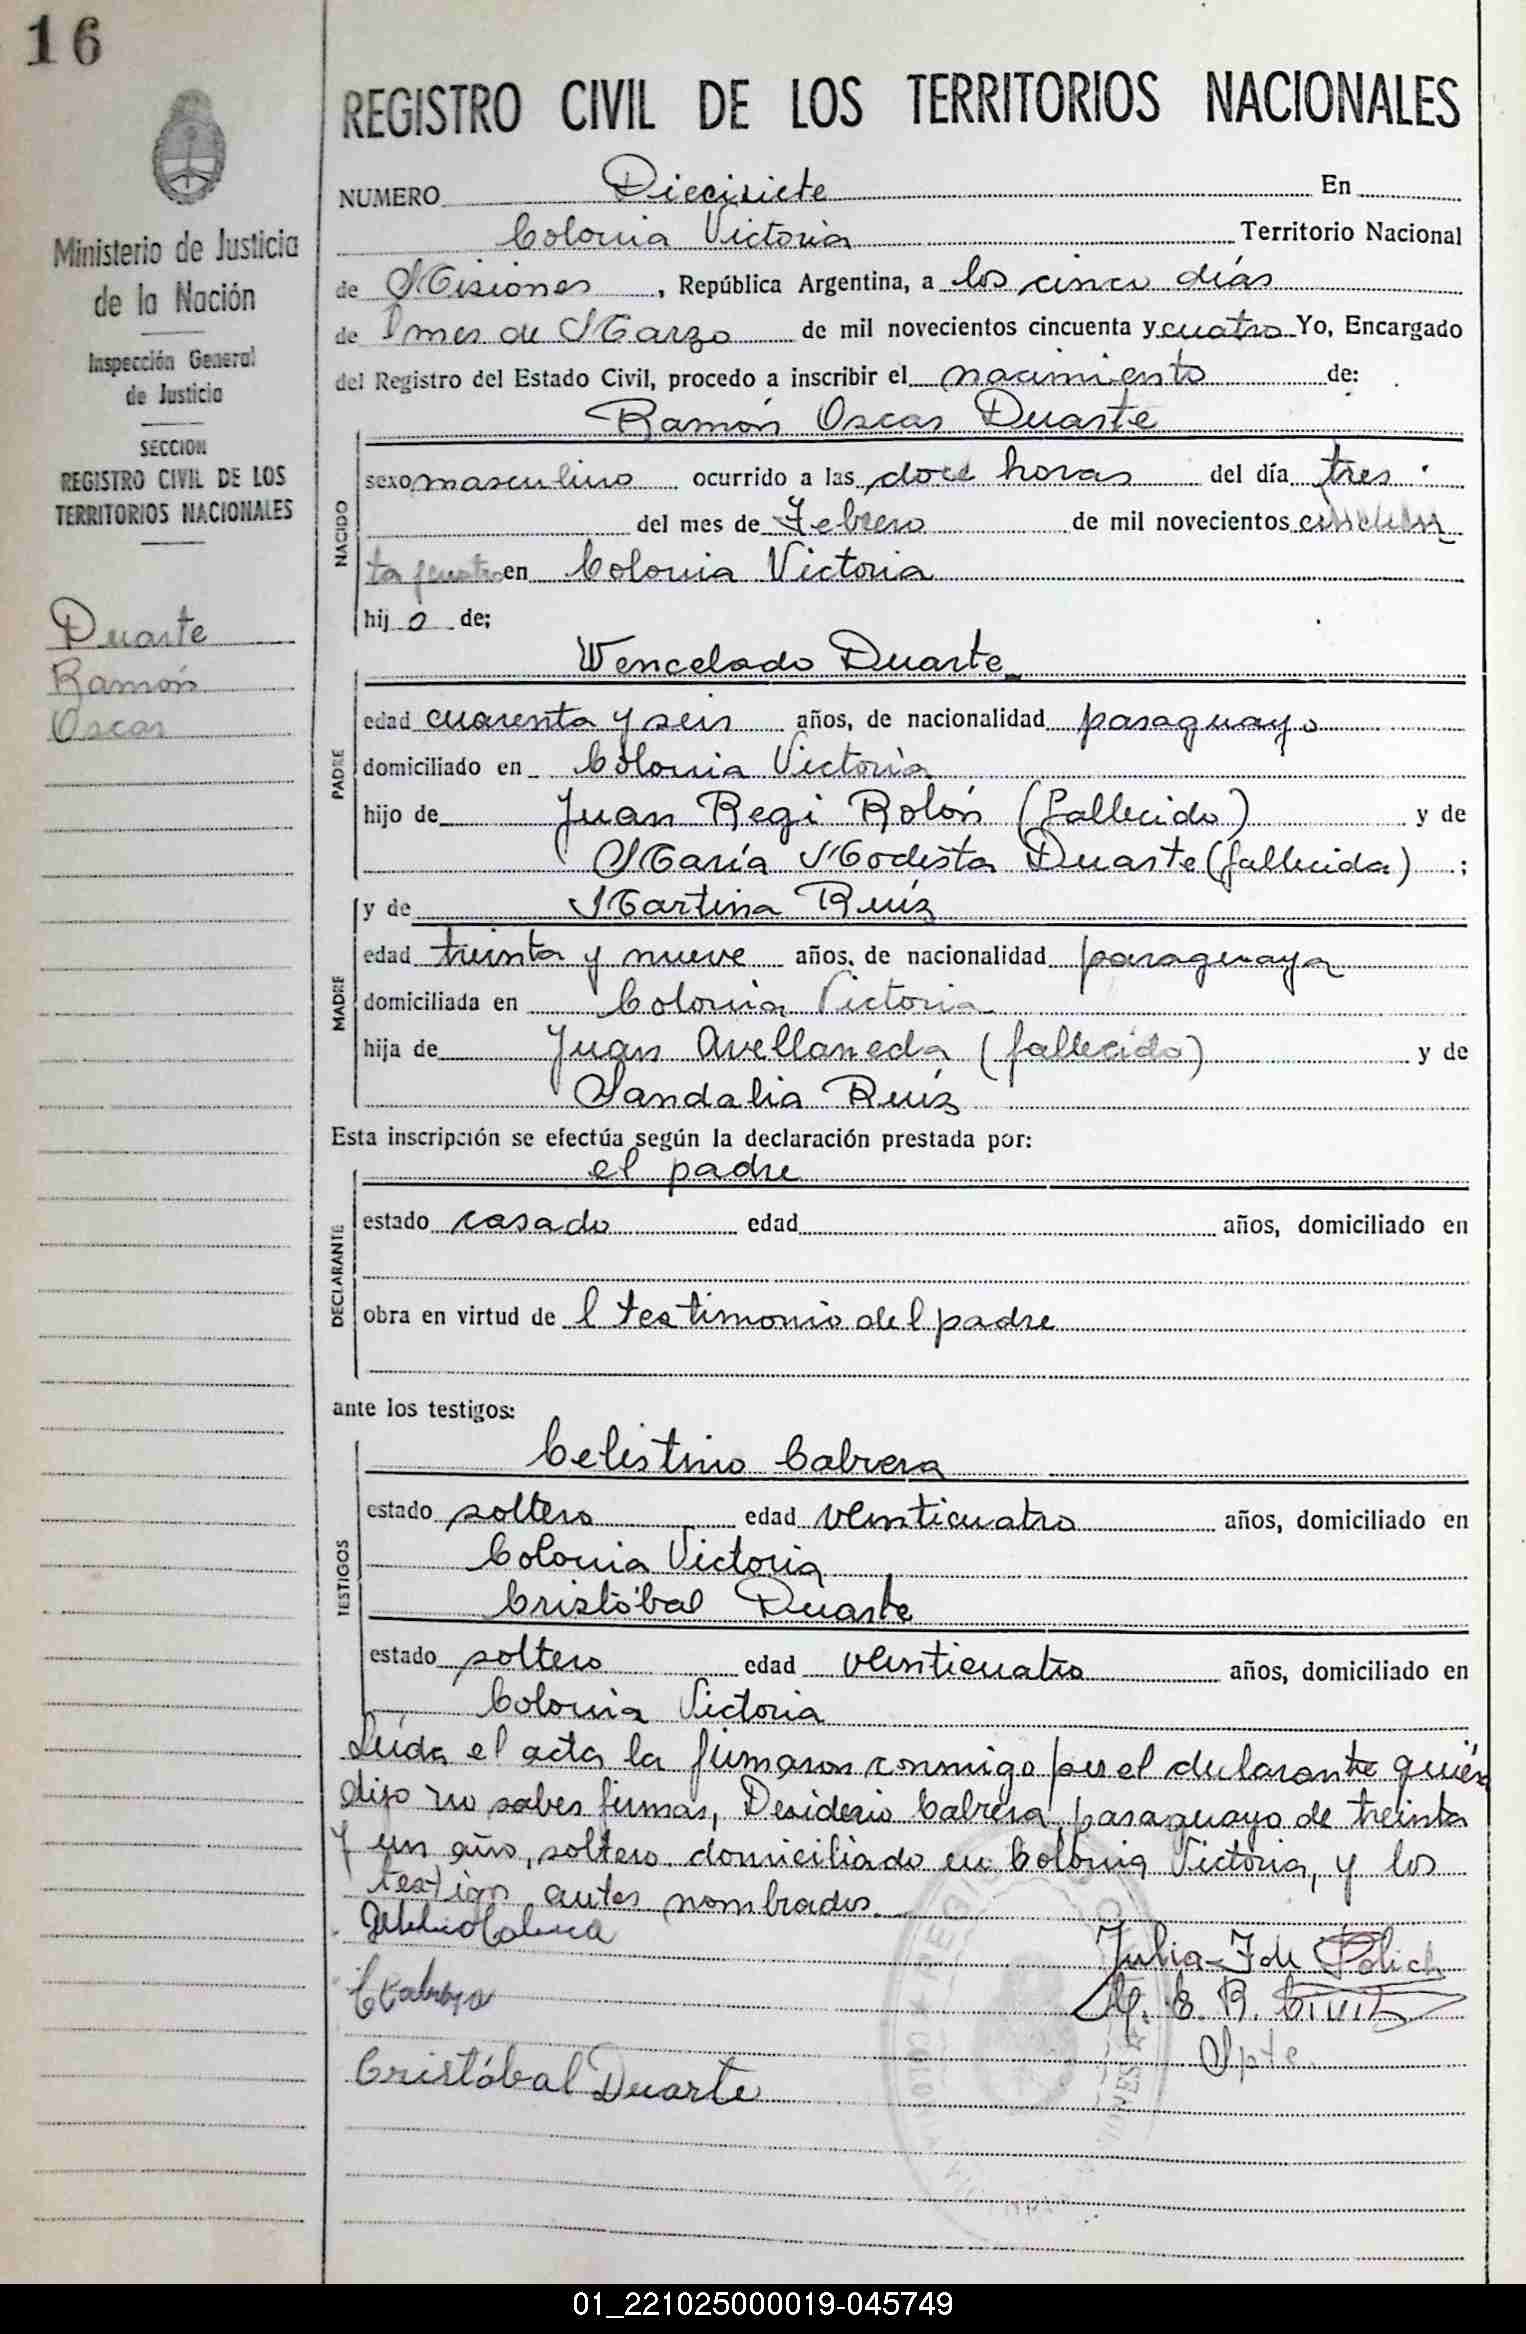 16
REGISTRO CIVIL DE LOS TERRITORIOS NACIONALES
Ministerio de Justicia
de la Nación
Inspección General
de Justicia
SECCION
REGISTRO CIVIL DE LOS
TERRITORIOS NACIONALES
Duarte
Ramón
Oscar
NUMERO Diecisiete En
Colonia Victoria Territorio Nacional
de Misiones, República Argentina, a los cinco días
de l mes de Marzo de mil novecientos cincuenta y cuatro Yo, Encargado
del Registro del Estado Civil, procedo a inscribir el nacimiento de:
Ramón Oscar Duarte
NACIDO
sexo masculino ocurrido a las doce horas del día tres
del mes de Febrero de mil novecientos cincuen
ta y cuatro en Colonia Victoria
hij o de;
Wencelado Duarte
PADRE
edad cuarenta y seis años, de nacionalidad paraguayo
domiciliado en Colonia Victoria
hijo de Juan Regi Rolón (fallecido) y de
María Modesta Duarte (fallecida) ;
y de Martina Ruíz
MADRE
edad treinta y nueve años, de nacionalidad paraguaya
domiciliada en Colonia Victoria
hija de Juan Avellaneda (fallecido) y de
Sandalia Ruíz
Esta inscripción se efectúa según la declaración prestada por:
el padre
DECLARANTE
estado casado edad años, domiciliado en
obra en virtud de l testimonio del padre
ante los testigos:
Celestino Cabrera
TESTIGOS
estado soltero edad veinticuatro años, domiciliado en
Colonia Victoria
Cristóbal Duarte
estado soltero edad veinticuatro años, domiciliado en
Colonia Victoria
Leída el acta la firmaron conmigo por el declarante quién
dijo no saber firmar, Desiderio Cabrera, paraguayo de treinta
y un año, soltero domiciliado en Colonia Victoria, y los
testigos antes nombrados.
Julia F de
E. R. Civil
Spte.
Cristóbal Duarte
01_221025000019-045749